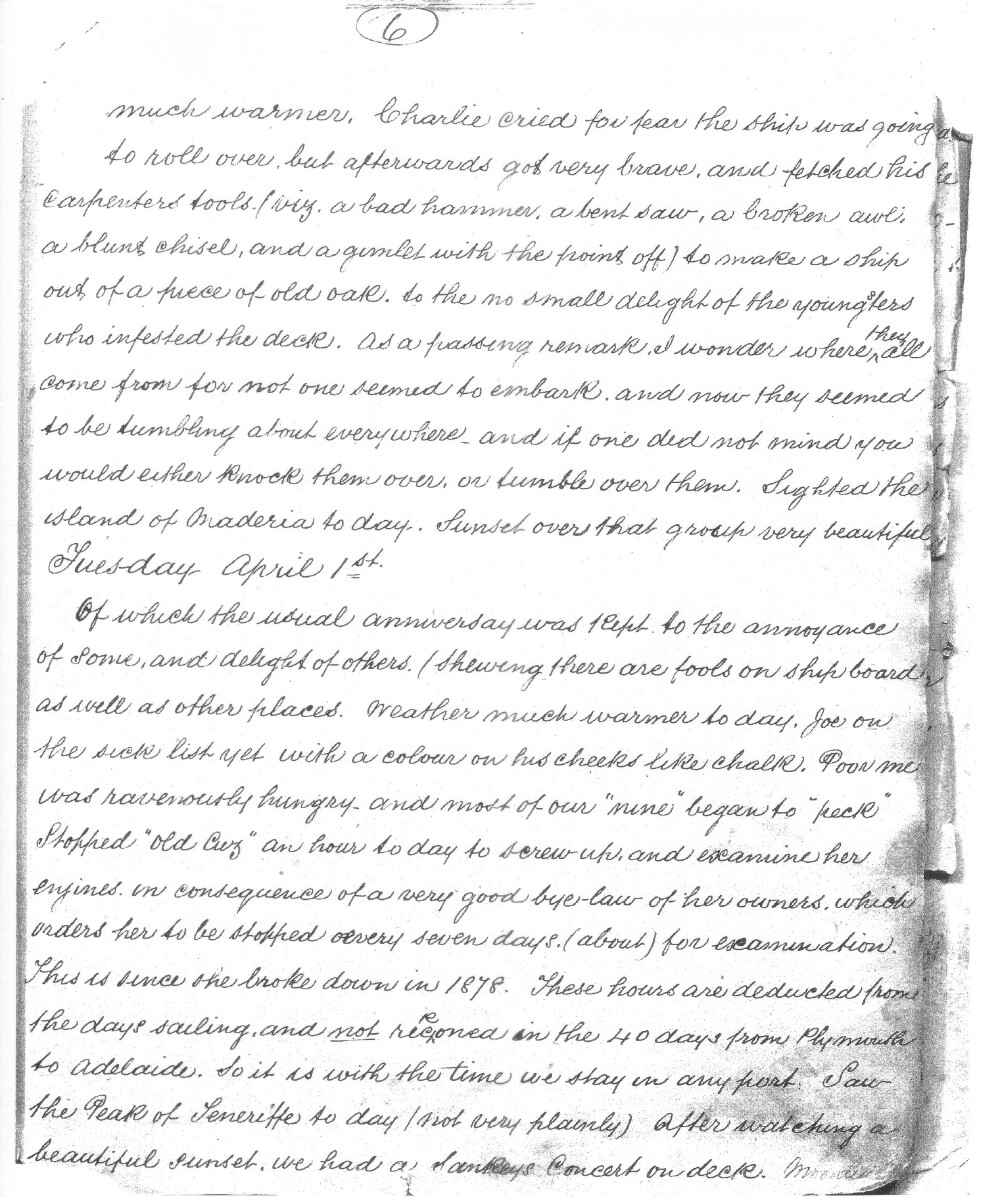 6
much warmer. Charlie cried for fear the ship was going
to roll over, but afterwards got very brave, and fetched his
carpenters tools (viz. a bad hammer, a bent saw, a broken awl,
a blunt chisel, and a gimlet with the point off) to make a ship
out of a piece of old oak. to the no small delight of the youngsters
who infested the deck. As a passing remark, I wonder where they all
come from for not one seemed to embark, and now they seemed
to be tumbling about everywhere - and if one did not mind you
would either knock them over, or tumble over them. Sighted the
island of Maderia to day. Sunset over that group very beautiful
Tuesday April 1st.
Of which the usual anniversay was kept to the annoyance
of some, and delight of others. (Shewing there are fools on ship board
as well as other places. Weather much warmer to day, Joe on
the sick list yet with a colour on his cheeks like chalk. Poor me
was ravenously hungry - and most of our "nine" began to "peck"
Stopped "old Cuz" an hour to day to screw up, and examine her
engines. in consequence of a very good bye-law of her owners, which
orders her to be stopped every seven days, (about) for examination.
This is since she broke down in 1878. These hours are deducted from
the days sailing, and not reconed in the 40 days from Plymouth
to Adelaide. So it is with the time we stay in any port. Saw
the Peak of Teneriffe to day (not very plainly) After watching a
beautiful sunset, we had a Sankeys Concert on deck.